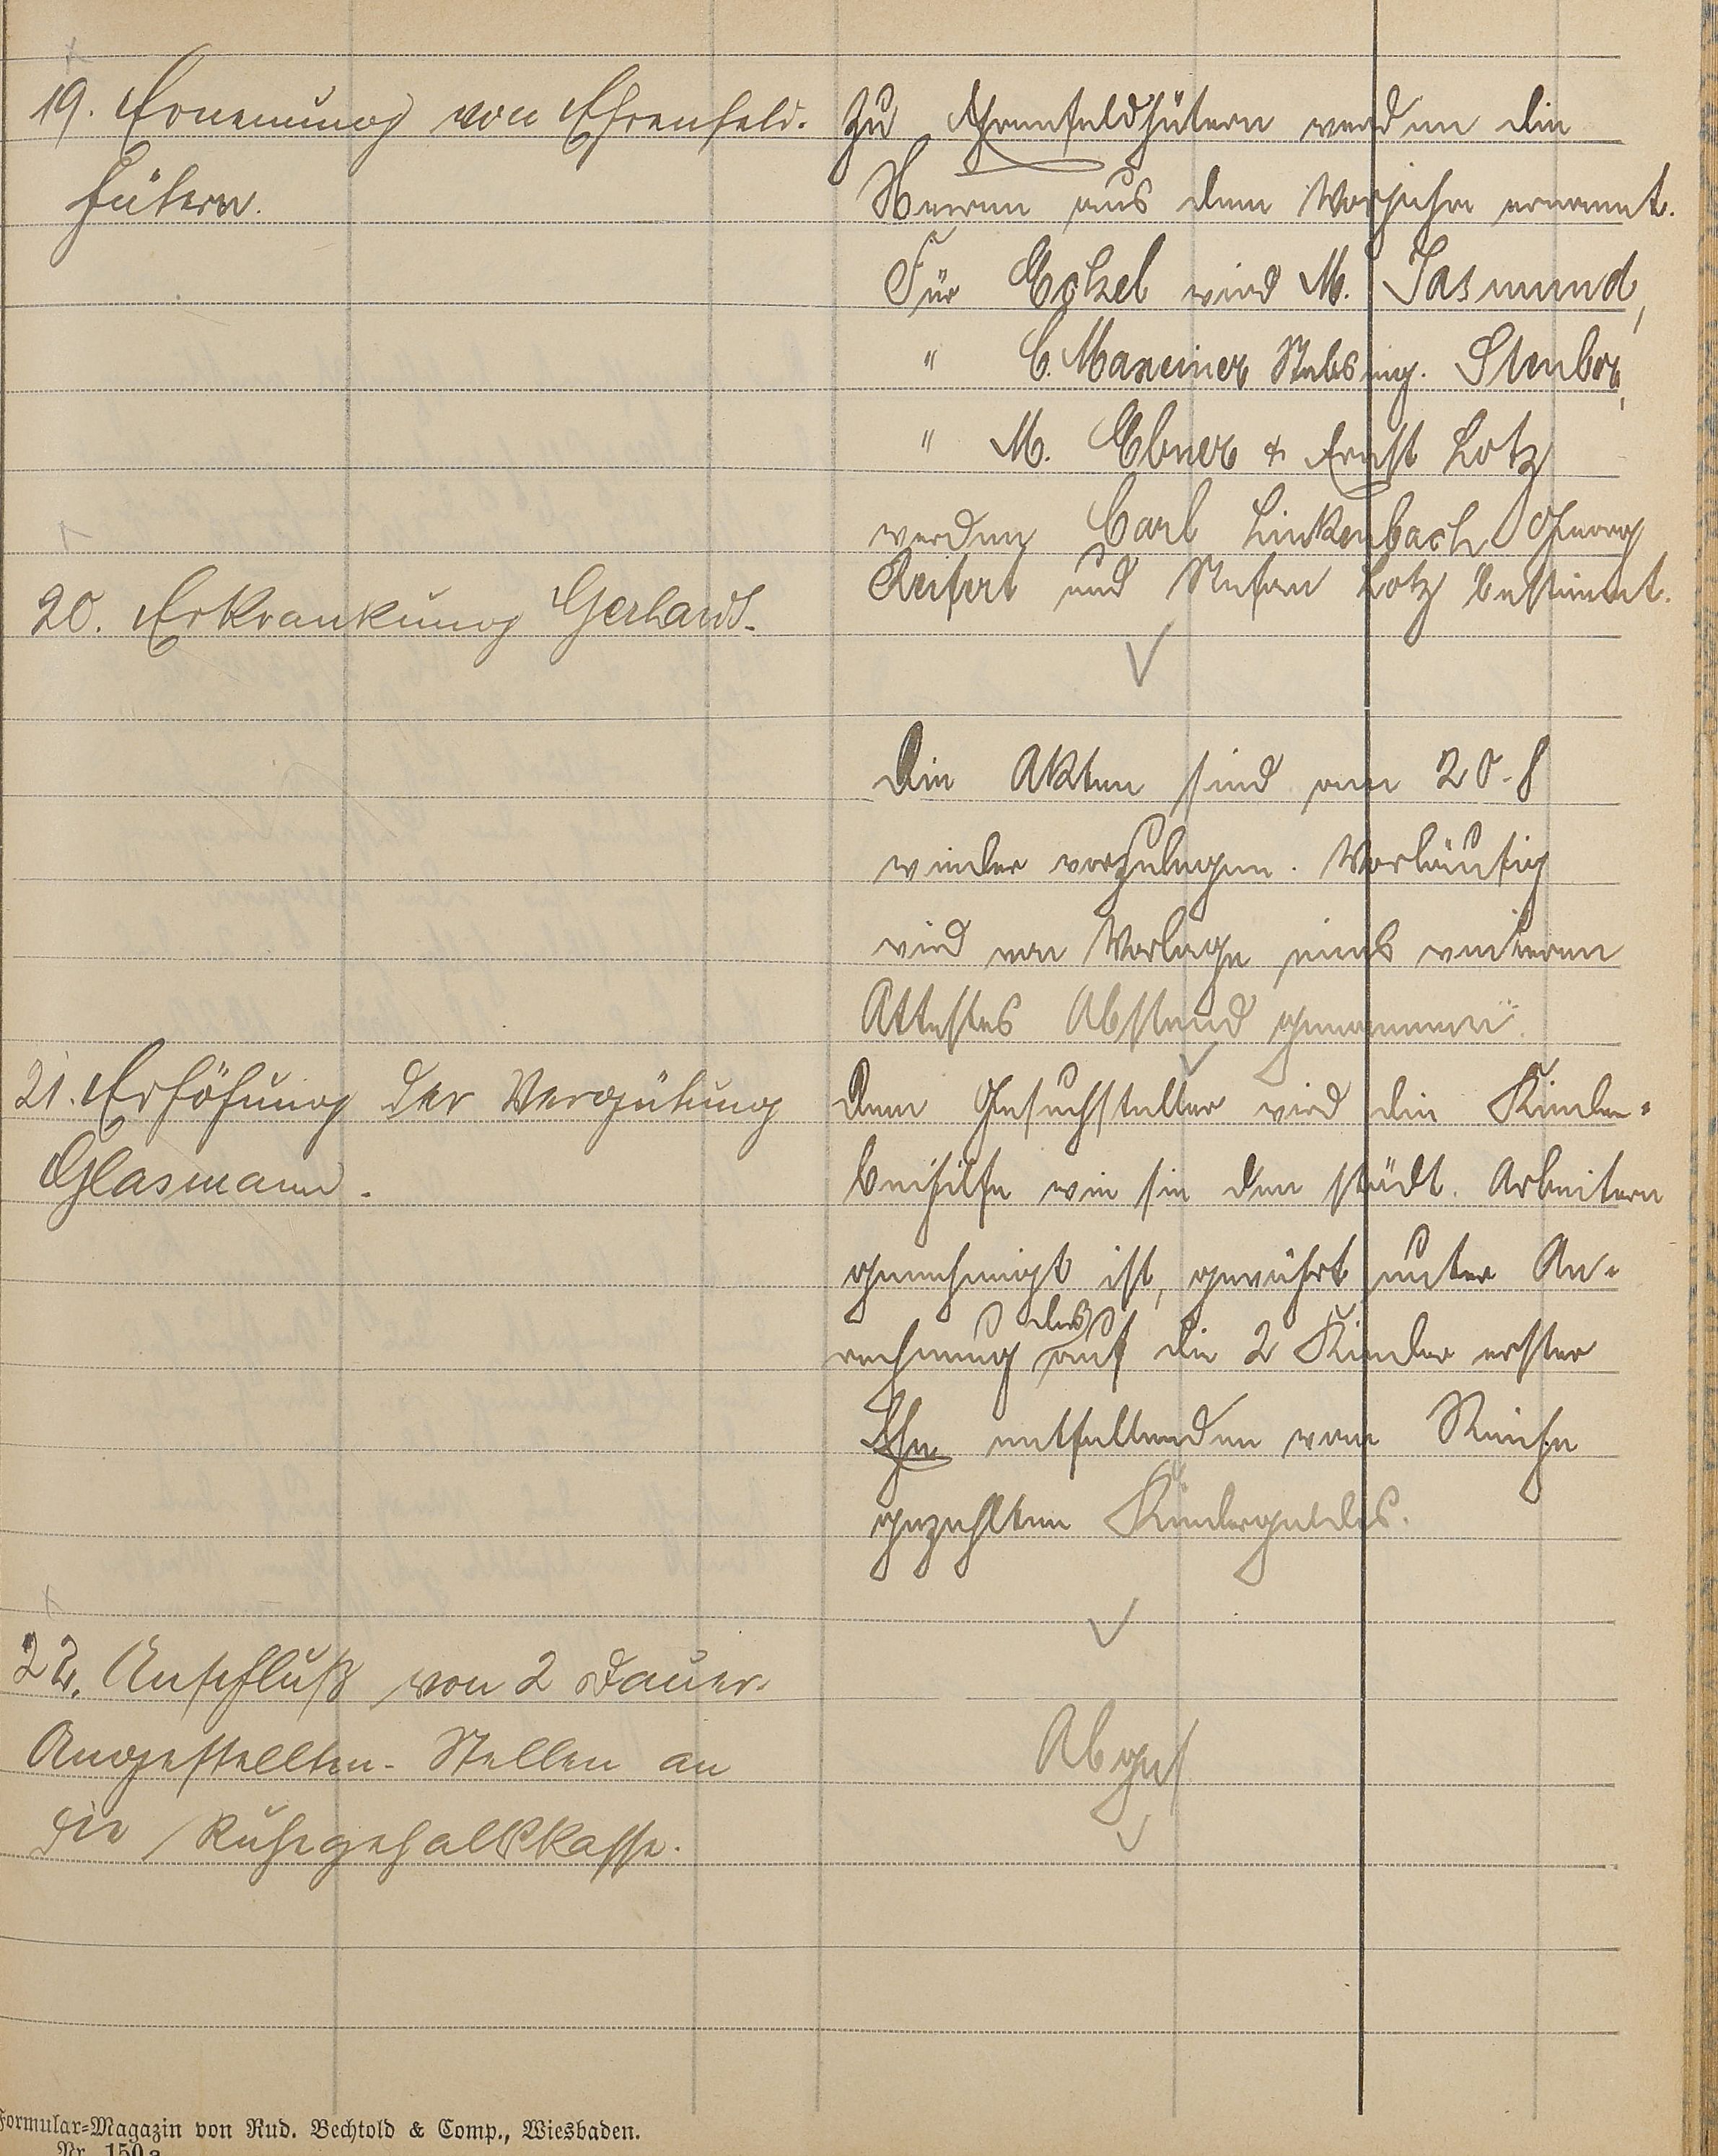 19. Ernennung von Ehrenfeld-
hütern.
Zu Ehrenfeldhütern werden die
Herren aus dem Vorjahre ernannt.
Für Eckel wird M. Jasmund,
" C. Maxeiner Stabsing. Stenbor,
" M. Ebner & Ernst Lotz
werden Carl Linkenbach Georg
Reifert und Stefan Lotz bestimmt.
20. Erkrankung Gerhard.
Die Akten sind am 20.8
wieder vorzulegen. Vorläufig
wird von Vorlage eines weiteren
Attestes Abstand genommen.
21. Erhöhung der Vergütung
Glasmann.
Dem Gesuchsteller wird die Kinder-
beihilfe wie sie den städt. Arbeitern
genehmigt ist, gewährt unter An-
rechnung des auf die 2 Kinder erster
Ehe entfallenden vom Reiche
gezahlten Kindergeldes.
22. Anschluß von 2 Dauer-
Angestellten-Stellen an
die Ruhegehaltskasse.
Abges
Formular-Magazin von Rud. Bechtold & Comp., Wiesbaden.
Nr. 150a